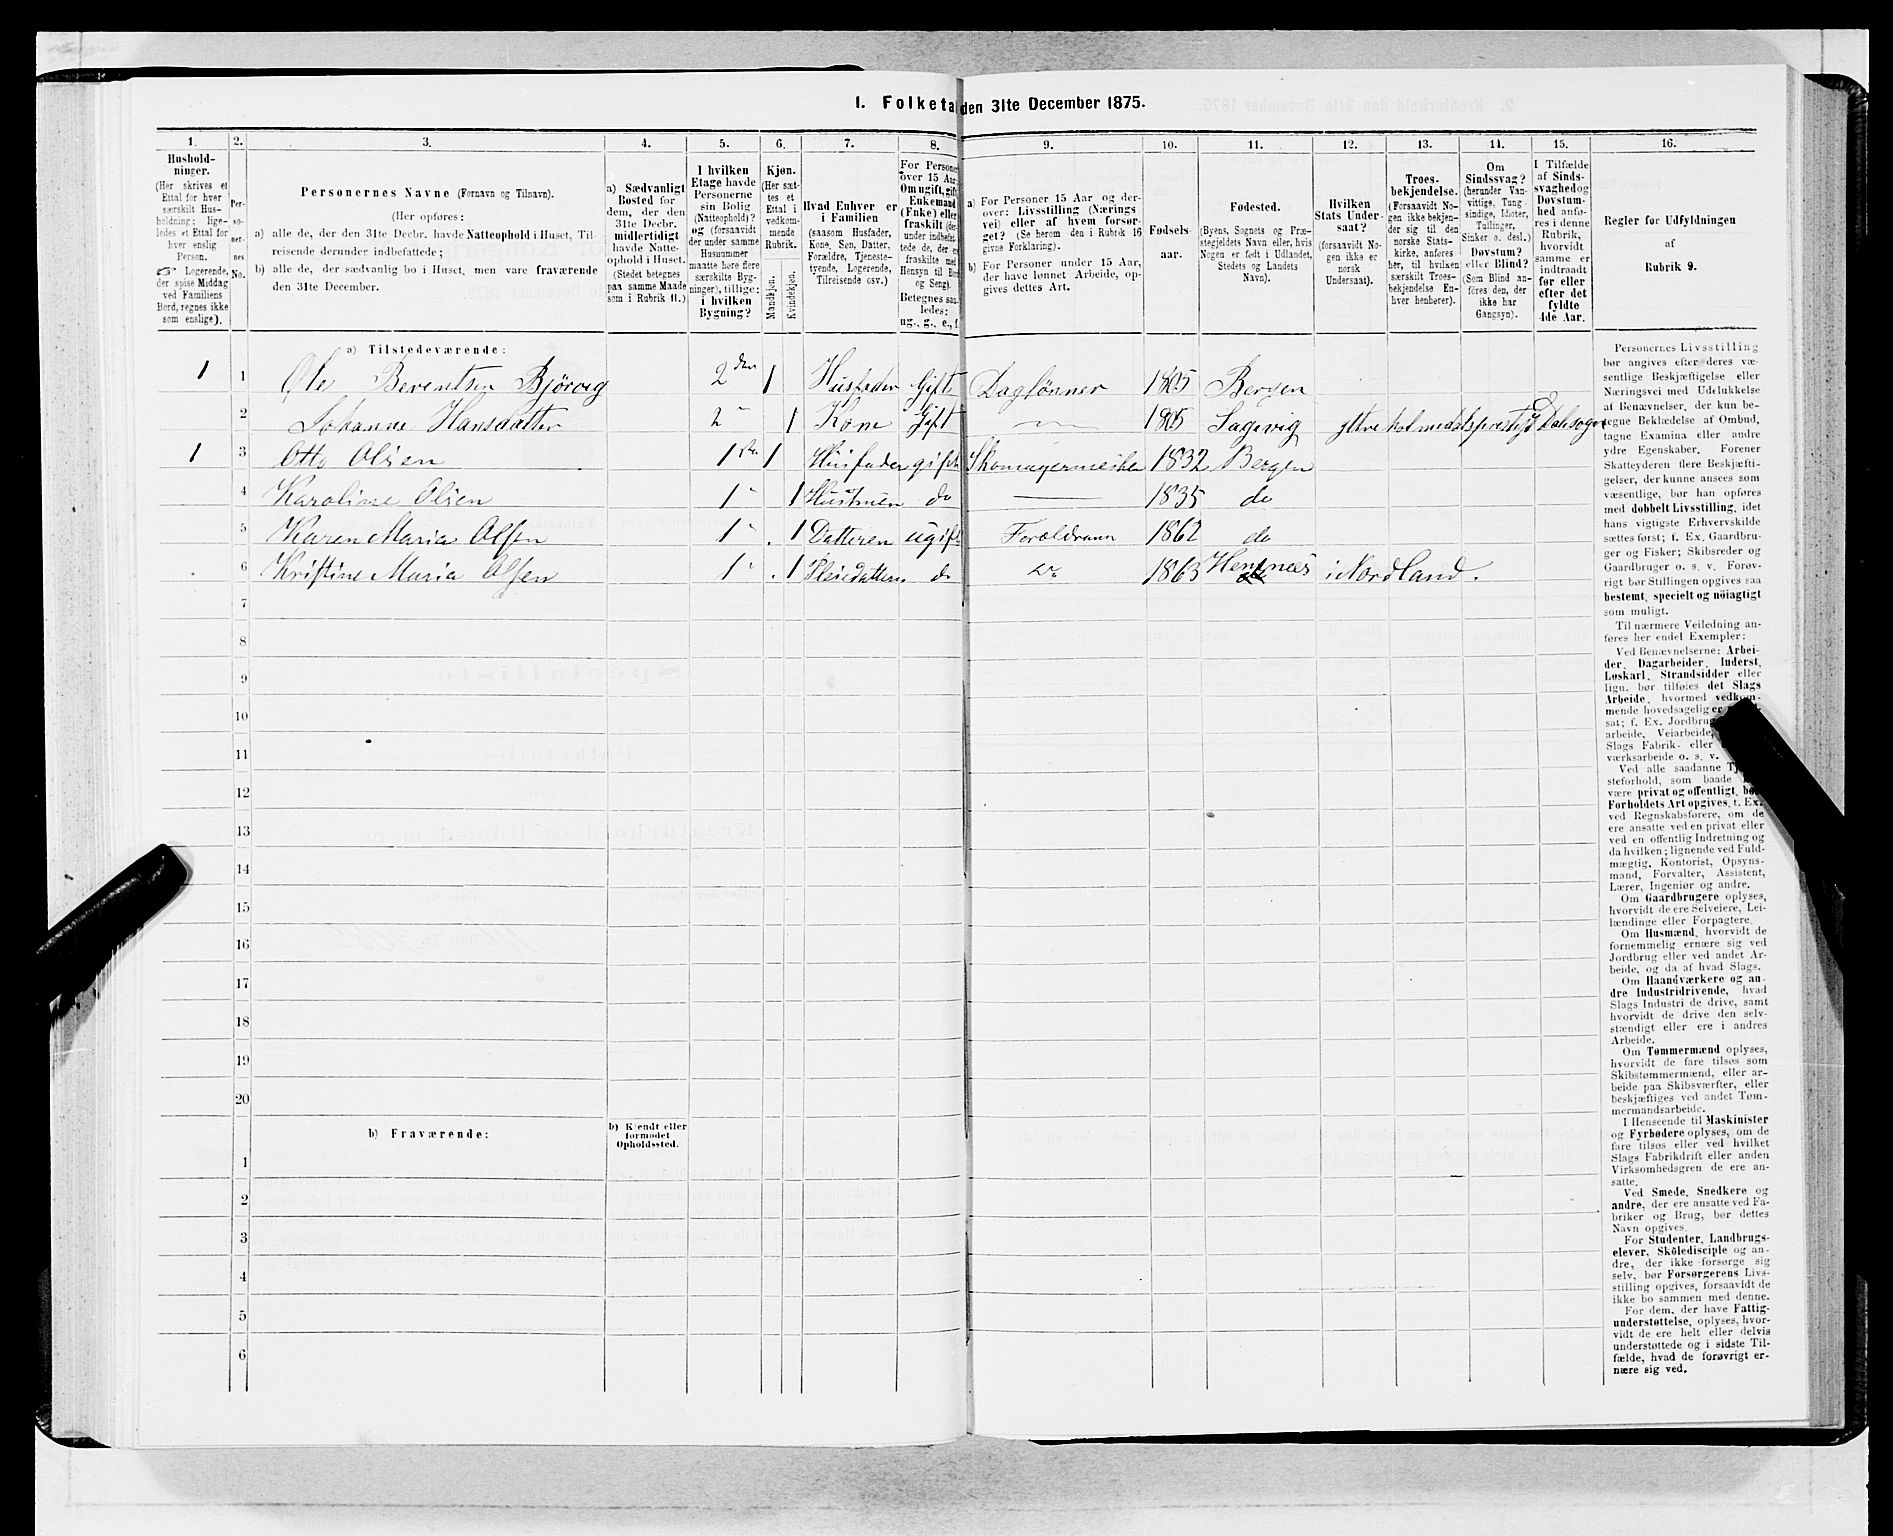 1. Folketal den 31te December 1875.
1. 2. 3. 4. 5. 6. 7. 8. 9. 10. 11. 12. 13. 14. 15. 16.
Hushold-
ninger.
(Her skrives et
Ettal for hver
særskilt Hus-
holdning; lige-
ledes et Ettal for
hver enslig
Person.
☞ Logerende,
der spise Middag
ved Familiens
Bord, regnes ikke
som enslige).
Per-
so-
ner-
nes
No.
Personernes Navne (Fornavn og Tilnavn).
(Her opføres:
a) alle de, der den 31te Decbr. havde Natteophold i Huset, Til-
reisende derunder indbefattede;
b) alle de, der sædvanlig bo i Huset, men vare fraværende
den 31te December.
a) Sædvanligt
Bosted for
dem, der den
31te Decbr.
midlertidigt
ophold i Huset.
havde Natte-
(Stedet betegnes
paa samme Maade
som i Rubrik 11.)
I hvilken
Etage havde
Personerne
sin Bolig
(Natteophold)?
og (forsaavidt
der under samme
Husnummer
maatte høre flere
særskilte Byg-
ninger), tillige:
i hvilken
Bygning?
Kjøn.
(Her sæt-
tes et
Ettal i
vedkom-
mende
Rubrik.
Mandkjøn.
Kvindekjøn.
Hvad Enhver er
i Familien
(saasom Husfader,
Kone, Søn, Datter,
Forældre, Tjeneste-
tyende, Logerende,
Tilreisende osv.)
For Personer
over 15 Aar:
Om ugift, gift,
Enkemand
(Enke) eller
fraskilt
Betegnes saa-
ledes:
ug., g., e., f.
a) For Personer 15 Aar og der-
over: Livsstilling (Nærings-
vei) eller af hvem forsør-
get? (Se herom den i Rubrik 16
givne Forklaring).
b) For Personer under 15 Aar,
der have lønnet Arbeide, op-
gives dettes Art.
Fødsels-
aar.
Fødested.
(Byens, Sognets og Præ-
stegjeldets Navn eller, hvis
Nogen er født i Udlandet,
Stedets og Landets
Navn).
Hvilken
Stats Under-
saat?
(forsaavidt No-
gen ikke er
norsk
Undersaat).
Troes-
bekjendelse.
(Forsaavidt No-
gen ikke bekjen-
der sig til den
norske Stats-
kirke, anføres
her, til hvilken
særskilt Troes-
bekjendelse En-
hver henhører).
Om
Sindssvag?
(herunder Van-
vittige, Tung-
sindige, Idioter,
Tullinger,
Sinker o. desl.)
Døvstum?
eller Blind?
(Som Blind an-
føres den, der
ikke har
Gangsyn).
I Tilfælde
af Sinds-
svaghed og
Døvstum-
hed anfø-
res i denne
Rubrik,
hvorvidt
samme er
indtraadt
før eller
efter det
fyldte
4de Aar.
Regler for Udfyldningen
af
Rubrik 9.
a) Tilstedeværende:
1 1 Ole Berentsen Björoig 2den 1 Husfader Gift Daglönner 1805 Bergen
2 Johanne Hansdatter 2 " 1 Kone Gift 1805 Sagevig yttre holmedals prestgd Dale sogn
1 3 Otto Olsen 1ste 1 Husfader gift Skomagermester 1832 Bergen
4 Karoline Olsen 1 " 1 Hustruen do 1835 do
5 Karen Maria Olsen 1 " 1 Datteren ugift Forældrene 1862 do
6 Kristine Maria Olsen 1 " 1 Pleiedatteren do Do 1863 Hemnæs i Nordland.
7
8
9
10
11
12
13
14
15
16
17
18
19
20
b) Fraværende:
b) Kjendt eller
formodet
Opholdssted.
1
2
3
4
5
6
Personernes Livsstilling
bør angives efter deres væ-
sentlige Beskjæftigelse eller
Næringsvei med Udelukkelse
af Benævnelser, der kun be-
tegne Beklædelse af Ombud,
tagne Examina eller andre
ydre Egenskaber. Forener
Skatteyderen flere Beskjæfti-
gelser, der kunne ansees som
væsentlige, bør han opføres
med dobbelt Livsstilling, idet
hans vigtigste Erhvervskilde
sættes først; f. Ex. Gaardbru-
ger og Fisker; Skibsreder og
Gaardbruger o. s. v. Forøv-
rigt bør Stillingen opgives saa
bestemt, specielt og nöiagtigt
som muligt.
Til nærmere Veiledning an-
føres her endel Exempler:
Ved Benævnelserne: Arbei-
der, Dagarbeider, Inderst,
Løskarl, Strandsidder eller
lign. bør tilføies det Slags
Arbeide, hvormed vedkom-
mende hovedsagelig er
sat; f. Ex. Jordbrug
arbeide, Veiarbeide,
Slags Fabrik- eller
værksarbeide o. s. v.
Ved alle saadanne
steforhold, som baade
være privat og offentligt,
Forholdets Art opgives, t. Ex.
ved Regnskabsførere, om de
ere ansatte ved en privat eller
ved en offentlig Indretning og
da hvilken; lignende ved Fuld-
mægtig, Kontorist, Opsyns-
mand, Forvalter, Assistent,
Lærer, Ingeniør og andre.
Om Gaardbrugere oplyses,
hvorvidt de ere Selveiere, Lei-
lændinge eller Forpagtere.
Om Husmænd, hvorvidt de
fornemmelig ernære sig ved
Jordbrug eller ved andet Ar-
beide, og da af hvad Slags.
Om Haandværkere og an-
dre Industridrivende, hvad
Slags Industri de drive, samt
hvorvidt de drive den selv-
stændigt eller ere i andres
Arbeide.
Om Tømmermænd oplyses,
hvorvidt de fare tilsøs som
Skibstømmermænd, eller ar-
beide paa Skibsværfter, eller
beskjæftiges ved andet Tøm-
mermandsarbeide.
I Henseende til Maskinister
og Fyrbødere oplyses, om de
fare tilsøs eller ved hvilket
Slags Fabrikdrift eller anden
Virksomhedsgren de ere an-
satte.
Ved Smede, Snedkere og
andre, der ere ansatte ved Fa-
briker og Brug, bør dettes
Navn opgives.
For Studenter, Landbrugs-
elever, Skoledisciple og an-
dre, der ikke forsørge sig
selv, bør Forsørgerens Livs-
stilling opgives, forsaavidt de
ikke bo sammen med denne.
For dem, der have Fattig-
understøttelse, oplyses, hvor-
vidt de ere helt eller delvis
understøttede og i sidste Til-
fælde, hvad de forøvrigt er-
nære sig ved.